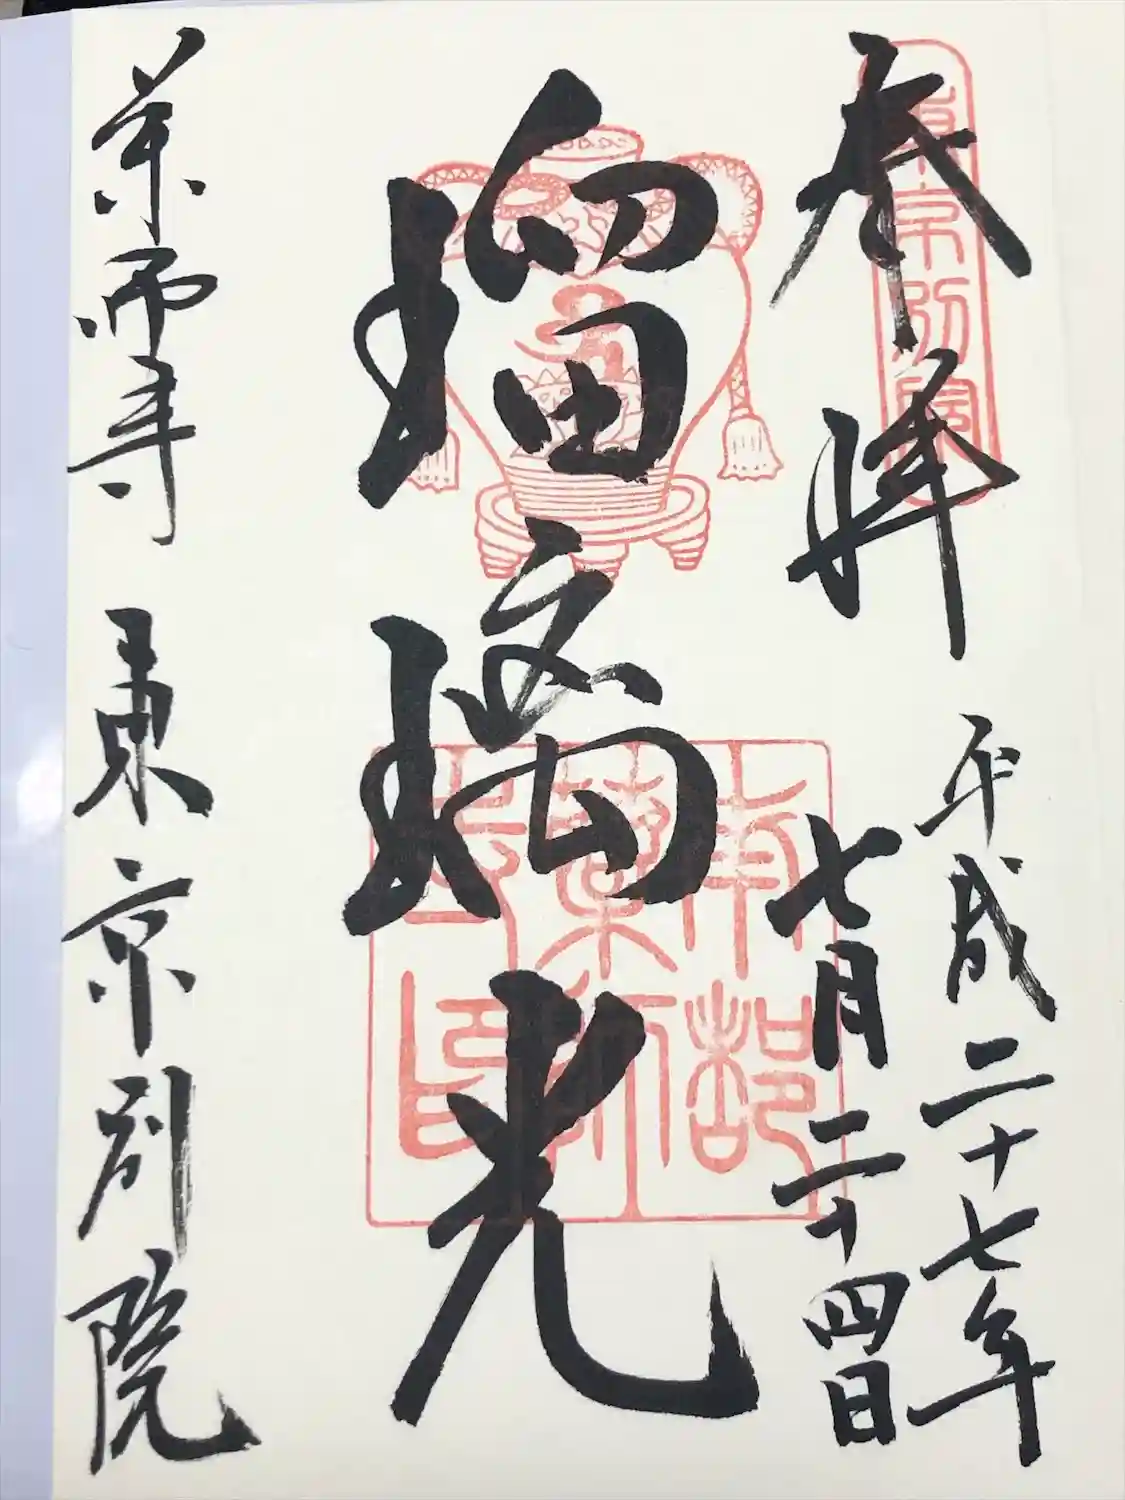 奉拝
平成二十七年
七月二十四日
瑠璃光
薬師寺 東京別院
東京別院
南都
薬師